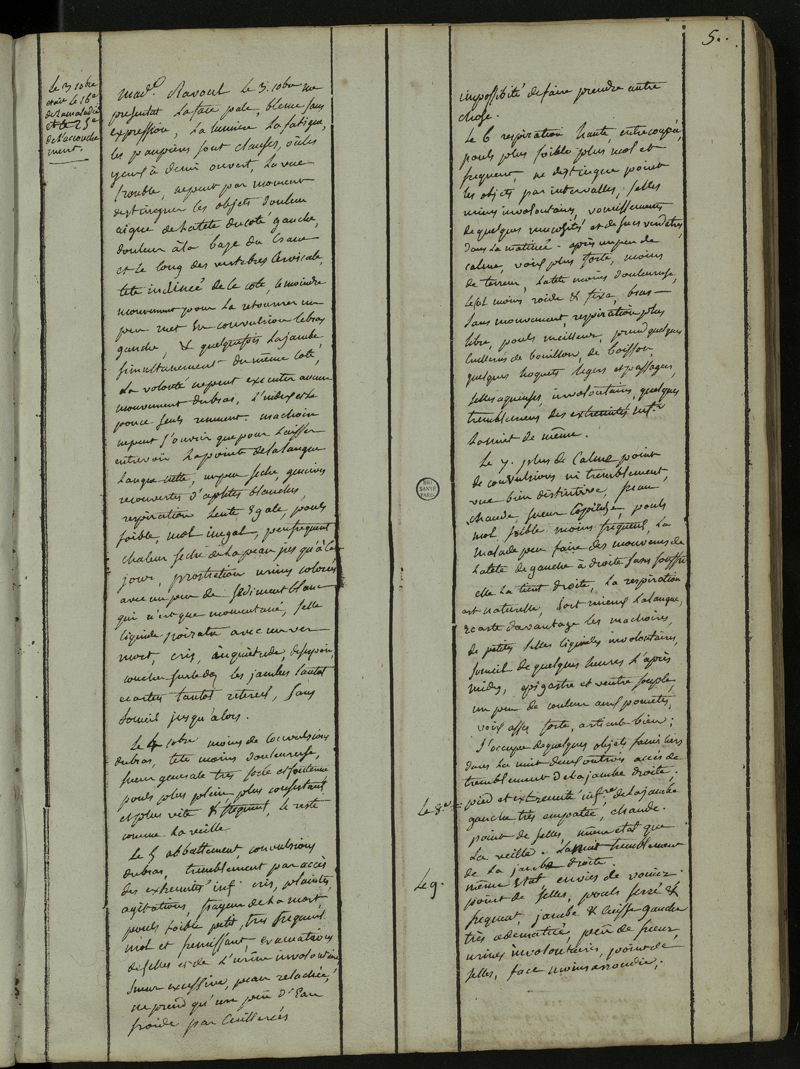 5.
le 3 10bre
etoit le 16e
de la maladie
et le 25e
de l'accouche
ment.
Mad.e Ravout le 3. 10bre me
presentat la face pale, bleme sans
expression, la lumiere la fatigue,
les paupieres sont clauses, ou les
yeux à demi ouvert, la vue
trouble, ne peut par moment
distinguer les objets douleur
aigue de la tete du coté gauche,
douleur à la baze du crane
et le long des vertebres cervicale,
tete inclinée de le coté, le moindre
mouvement pour la retourner un
peu met en convultion le bras
gauche, & quelquefois la jambe
simultanement du même coté,
la volonté ne peut executer aucun
mouvement du bras, l'index et le
pouce seuls remuent. machoire
ne peut s'ouvrir que pour laisser
entrevoir la pointe de la langue
langue cette, un peu seche, gencives
recouvertes d'aphtes blanches,
respiration lente egale, pouls
foible, mol inegal, peu frequent
chaleur seche de la peau jusqu'à ce
jour, prostration urines colorées
avec un peu de sediment blanc
qui n'est que momentané, selle
liquide noiratre avec un ver
mort, cris, inquiétude, desespoir,
coucher sur le dos les jambes tantot
ecartes tantot retirés, sans
someil jusqu'alors.
Le 4 10bre moins de convulsions
du bras, tete moins douleureuse,
sueur generale très forte et soutenue
pouls plus plein plus consistant
et plus vite & frequent, le reste
comme la veille.
Le 5 abattement, convulsions
du bras, tremblement par accès
des extremités inf. cris, plaintes,
agitations, frayeur de la mort,
pouls foible petit, tres frequent
mol et fremissant evacuations
de selles et de l'urine involontaire
sueur excessive, peau relachée,
ne prend qu'un peu d'eau
froide par cuillerées
impossibité de faire prendre autre
chose.
Le 6 respiration haute, entrecoupée,
pouls plus foible plus mol et
frequent, ne destingue point
les objets par intervalles, selles
urines involontaires, vomissements
de quelques mucosités et de sucs verdatres
dans la matinée. après un peu de
calme, voix plus forte, moins
de terreur, la tete moins douleureuse,
le col moins roide & fixe, bras
sans mouvement, respiration plus
libre, pouls meilleur, prend quelques
cuillerées de bouillon, de boisson.
quelques hoquets legers et passagers,
selles aqueuses, involontaires, quelques
tremblemens des extremités inf.r
la nuit de même.
Le 7. plus de calme point
de convulsions ni tremblement,
vue bien distinctive, peau
chaude, sueur copieuse, pouls
mol, foible moins frequent, la
malade peu faire des mouvemens de
la tete de gauche à droite sans souffrir
elle la tient droite, la respiration
est naturelle, sort mieux la langue,
ecarte davantage les machoires,
de petites selles liquides involontaires,
someil de quelques heures l'après
midi, epigastre et ventre souple,
un peu de couleur aux pometes,
voix assez forte, articule bien;
s'occupe de quelques objets familiers
dans la nuit deux ou trois accès de
tremblement de la jambe droite.
Le 8e =
pied et extremité infre de la jambe
gauche très empatée, chaude.
point de selles, même etat que
la veille. la nuit tremblement
de la jambe droite.
Le 9.
même etat envies de vomir
point de selles, pouls serré &
frequent, jambe & cuisse gauche
très œdematiée, peu de sueur,
urines involontaires, point de
selles, face moins
BIU
SANTÉ
PARIS